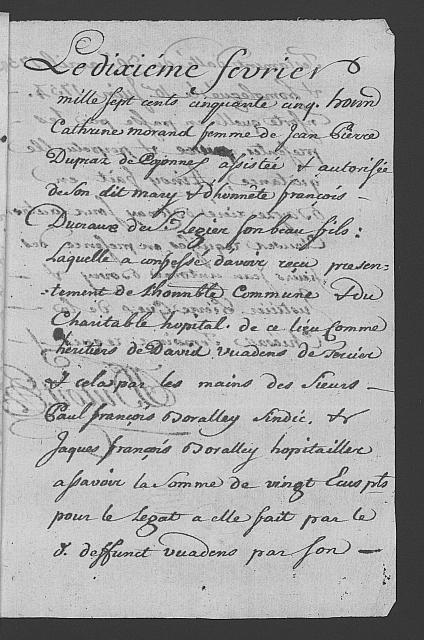 Le dixiéme fevrier
mille sept cents cinquante cinq. honn
Cathrine morand femme de Jean Pierre
Dupraz de assistée & autorisée
de Son dit mary & d'honnéte françois –
Ducraux de St. Legier Son beau fils:
Laquelle a confessé d'avoir reçu presen-
-tement de Lhonnble Commune & du
Charitable hopital. de ce lieu Comme
héritiers de David vuadens de
& cela par les mains des Sieurs –
Paul françois Doralley Sindic. &
Jaques françois Doralley hopitailler
assavoir la Somme de vingt Ecus pts
pour le Legat a elle fait par le
d. deffunct vuadens par Son –